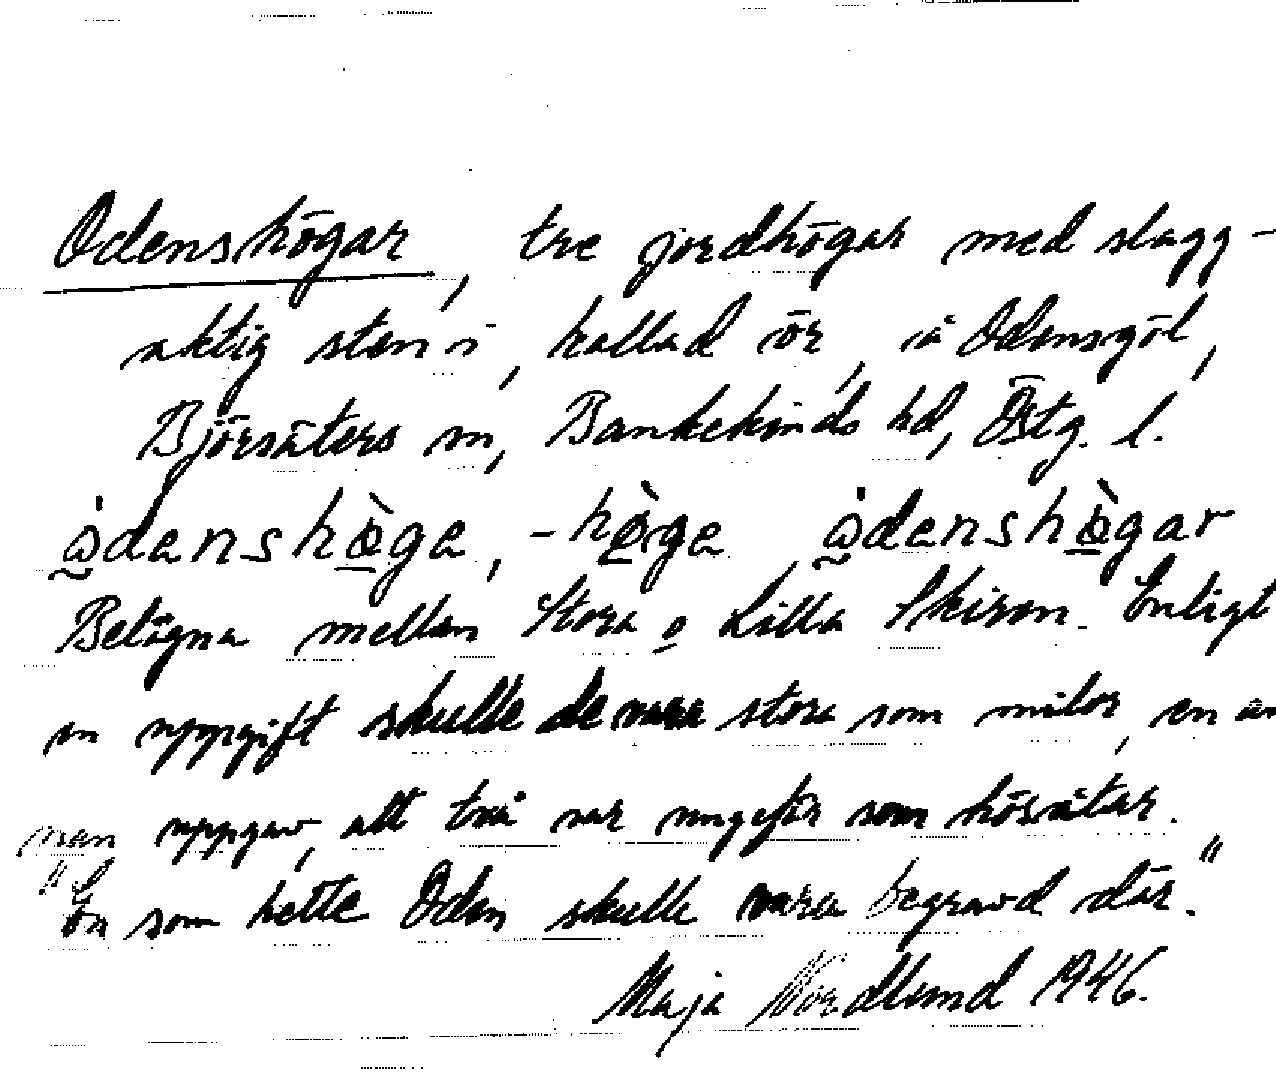 Odenshögar, tre jordhögar med slagg-
aktig sten i, kallad ör, i å Odensgöl,
Björsäters sn, Bankekinds hd, Östg. l.
ådenshöga, -höga ådenshögar
Belägna mellan Stora o Lilla Skiren. Enligt
en uppgift skulle de vara stora som milor, en an
nan uppgav, att två var ungefär som hösåtar.
"En som hette Oden skulle vara begravd där."
Maja Nordlund 1946.